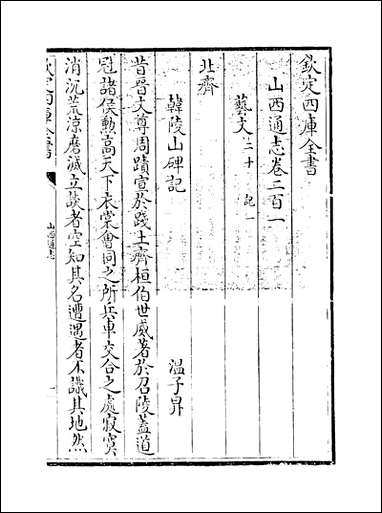 欽定四庫全書
山西通志卷二百一
藝文二十 記一
北齊
韓陵山碑記 溫子昇
昔晉文尊周蹟宣於踐土齊桓伯世威著於召陵蓋道
冠諸侯勲高天下衣裳會同之所兵車交合之處寂寞
消沉荒涼磨滅立談者空知其名遭遇者不識其地然
欽定四庫全書
山西通志
一